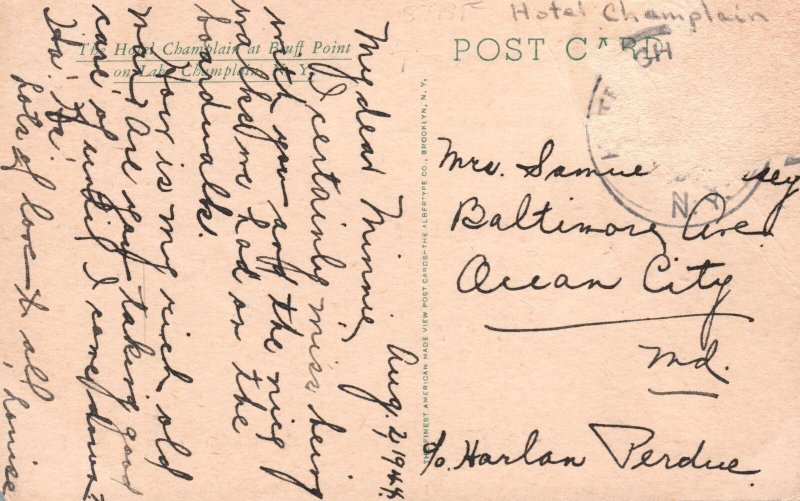 Hotel Champlain
The Hotel Champlain at Bluff Point
on Lake Champlain, N. Y.
POST CARD
THE FINEST AMERICAN MADE VIEW POST CARDS—THE ALBERTYPE CO., BROOKLYN, N. Y.
Aug. 2, 1944.
My dear Minnie,
I certainly miss being
with you and the nice
walks we had on the
boardwalk.
How is my rich old
man? Are you taking good
care of until I come down?
Ha! Ha!
Lots of love to all,
Louise
N.Y.
Mrs. Samue
Baltimore Ave.
Ocean City
Md.
c/o Harlan Perdue.